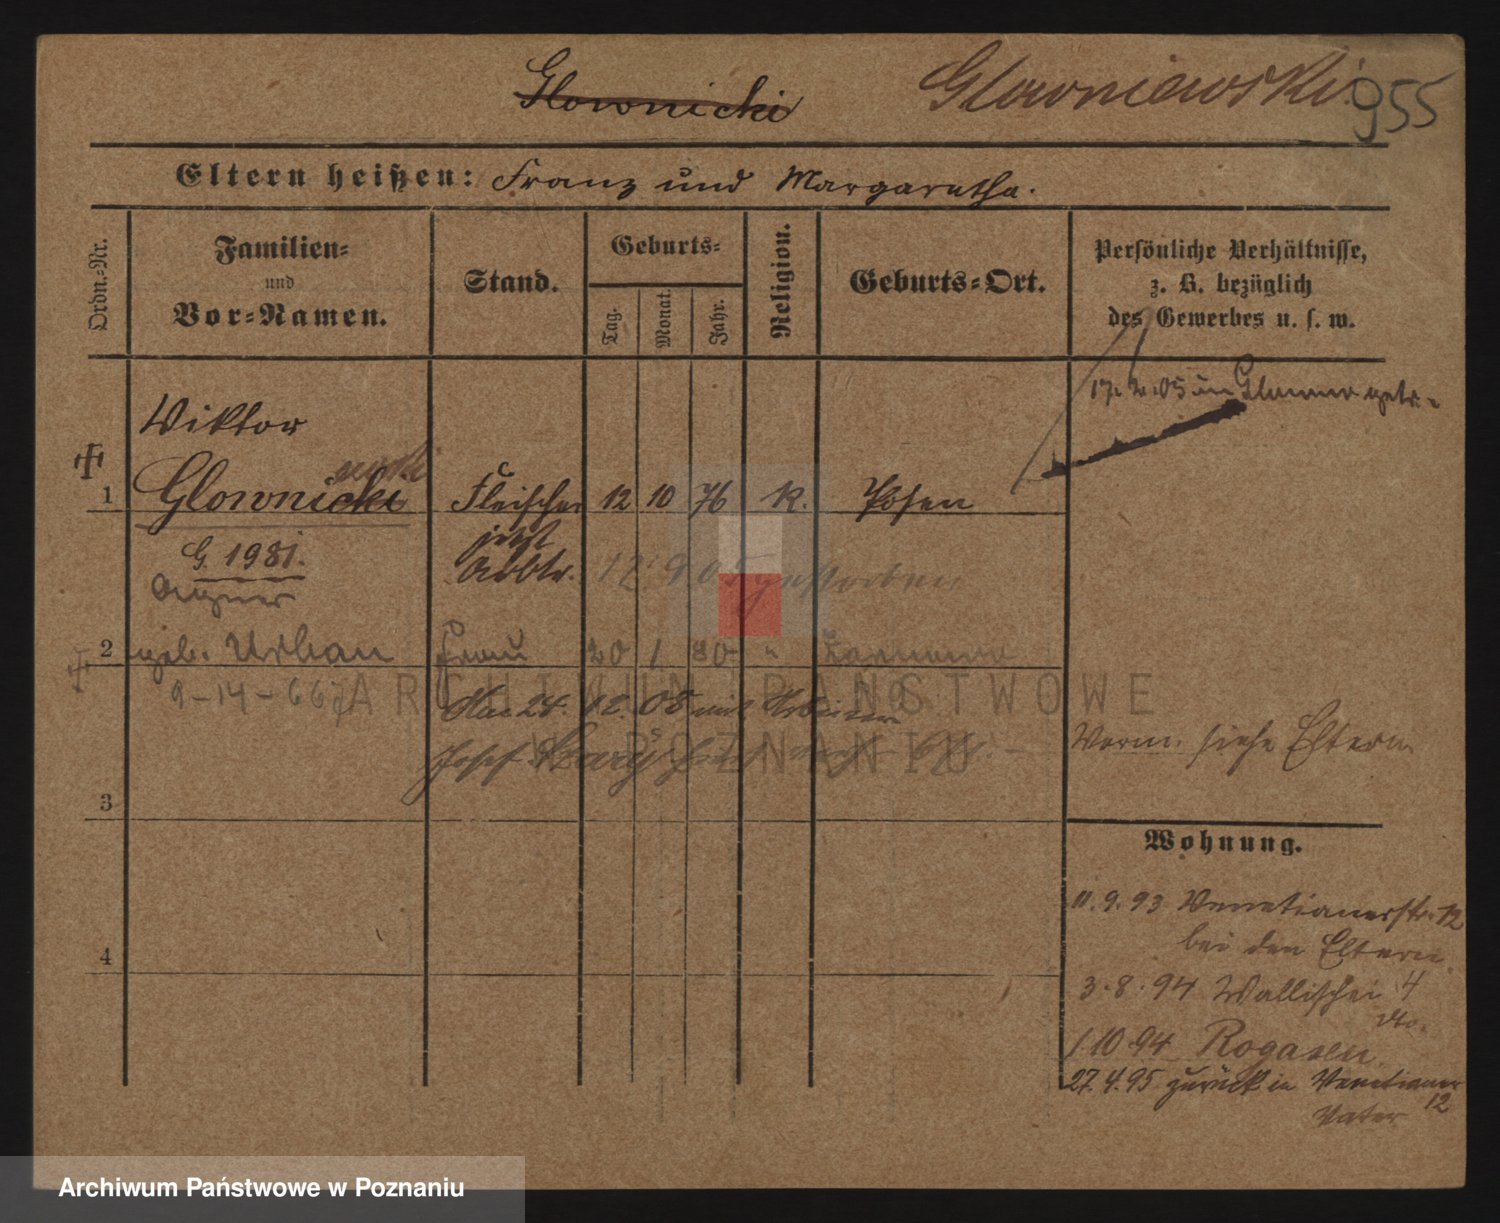 Glownicki Glowniewski 955
Eltern heißen: Franz und Margaretha.
Ordn.-Nr.
Familien-
und
Vor-Namen.
Stand.
Geburts-
Tag.
Monat.
Jahr.
Religion.
Geburts-Ort.
Persönliche Verhältnisse,
z. B. bezüglich
des Gewerbes u. s. w.
17. 2. 05 in
Viktor
1 Glownicki Fleischer 12 10 76 K. Posen
ewski
jetzt
G. 1981. Arbtr. 12 9 05 gestorben
2 geb. Urban Frau 20 1 80 "
9-14-667
24. 12. 08 mit
Josef
Vorm. siehe Eltern
3
Wohnung.
11. 9. 93 Venetianerstr. 12
bei den Eltern.
4
3. 8. 94 Wallischei 4
dto.
1. 10 94 Rogasen
27. 4. 95 zurück in Venetianer
12
Vater
ARCHIWUM PAŃSTWOWE
W POZNANIU
Archiwum Państwowe w Poznaniu